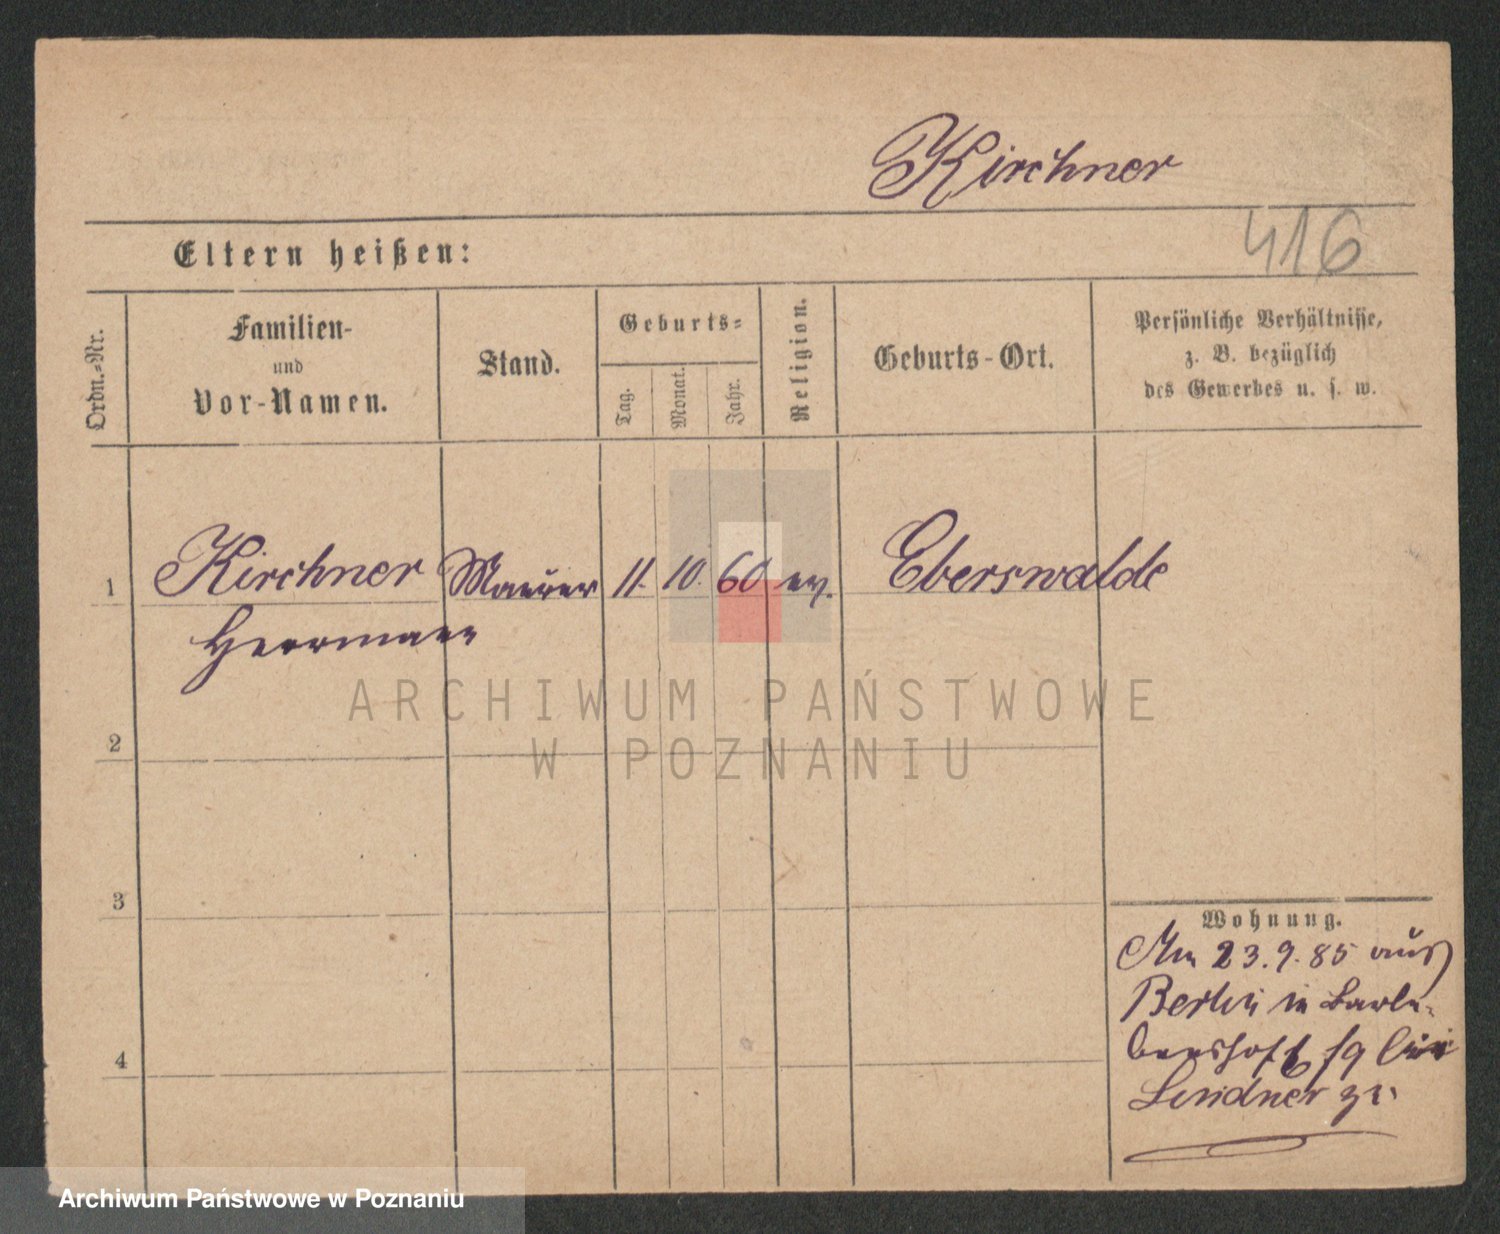 Kirchner
416
Eltern heißen:
Ordn.-Nr.
Familien-
und
Vor-Namen.
Stand.
Geburts-
Tag.
Monat.
Jahr.
Religion.
Geburts-Ort.
Persönliche Verhältnisse,
z. B. bezüglich
des Gewerbes u. s. w.
1 Kirchner Maurer 11. 10. 60 ev. Eberswalde
Herrmann
2
3
4
Wohnung.
Am 23.9.85 aus
Berlin in
bei
Lindner zu
ARCHIWUM PAŃSTWOWE
W POZNANIU
Archiwum Państwowe w Poznaniu